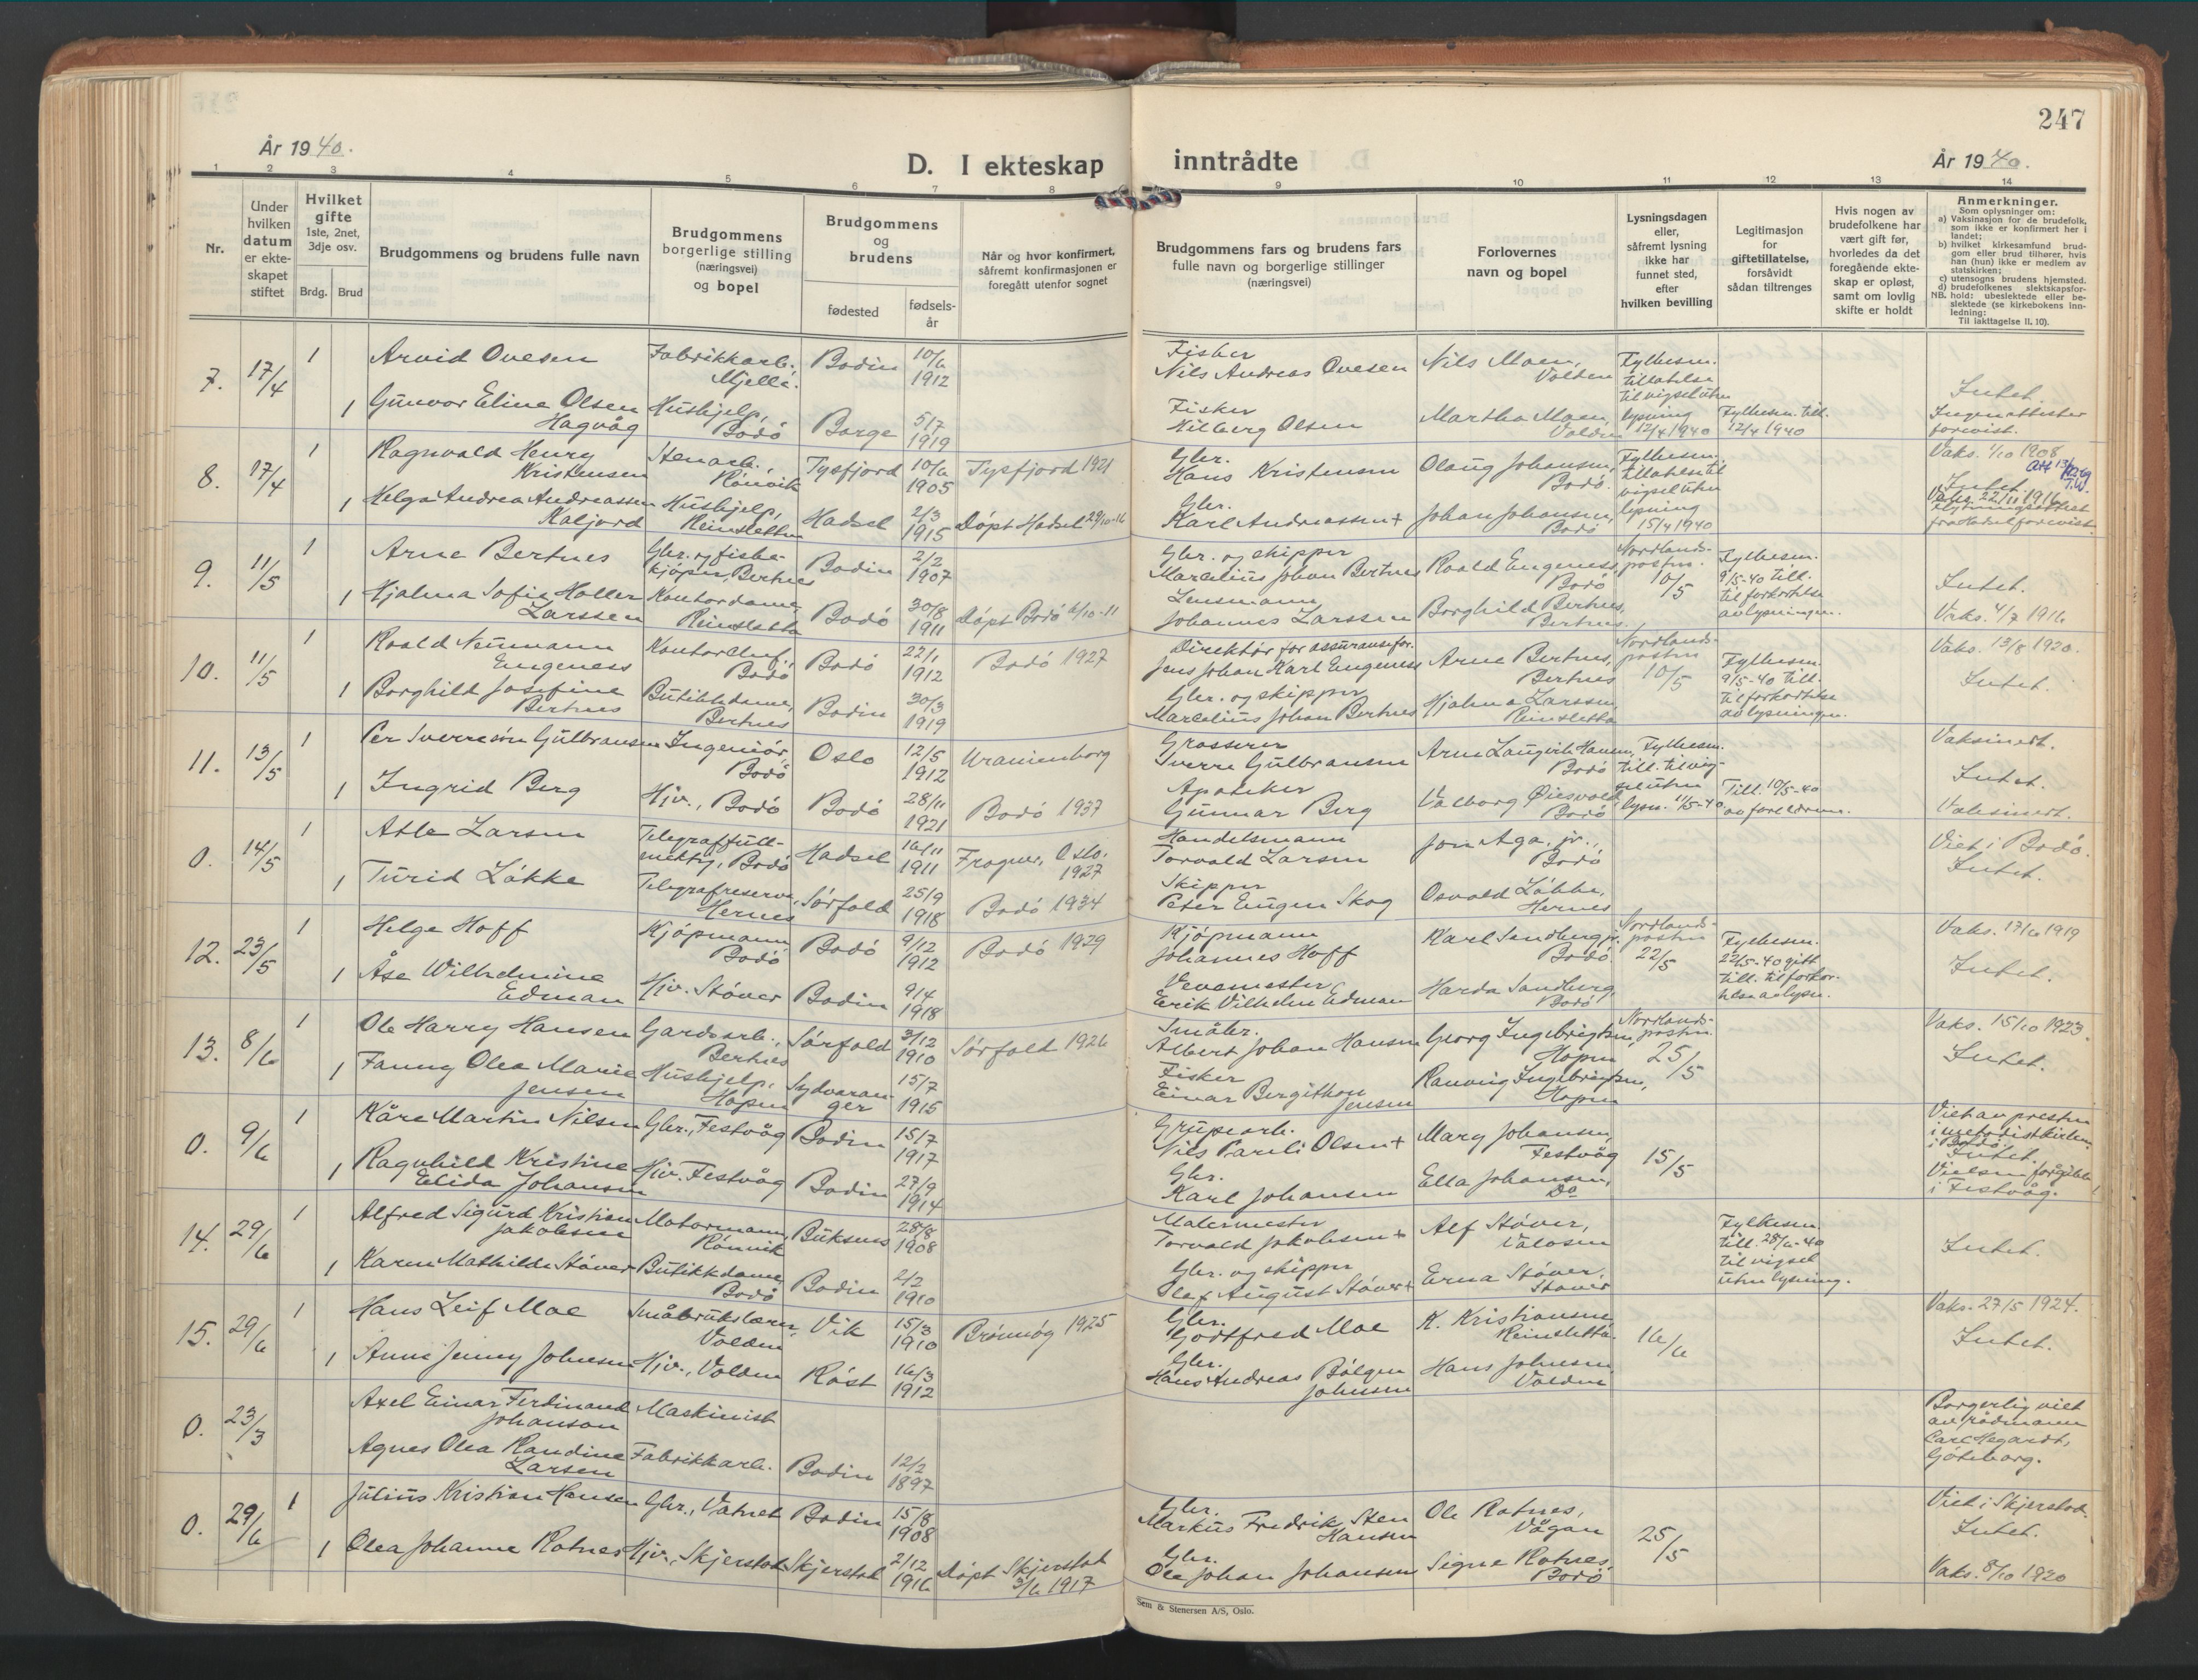 247
År 1940.
D. I ekteskap inntrådte
År 1940.
1 2 3 4 5 6 7 8 9 10 11 12 13 14
Nr.
Under hvilken datum er ekteskapet stiftet
Hvilket gifte 1ste, 2net, 3dje osv.
Brdg. Brud
Brudgommens og brudens fulle navn
Brudgommens borgerlige stilling (næringsvei) og bopel
Brudgommens og brudens
fødested
fødsels-år
Når og hvor konfirmert, såfremt konfirmasjonen er foregått utenfor sognet
Brudgommens fars og brudens fars fulle navn og borgerlige stillinger (næringsvei)
Forlovernes navn og bopel
Lysningsdagen eller, såfremt lysning ikke har funnet sted, efter hvilken bevilling
Legitimasjon for giftetillatelse, forsåvidt sådan tiltrenges
Hvis nogen av brudefolkene har vært gift før, hvorledes da det foregående ekteskap er opløst, samt om lovlig skifte er holdt
Anmerkninger.
Som oplysninger om:
a) Vaksinasjon for de brudefolk, som ikke er konfirmert her i landet;
b) hvilket kirkesamfund brudgom eller brud tilhører, hvis han (hun) ikke er medlem av statskirken;
c) utensogns brudens hjemsted.
d) brudefolkenes slektskapsforhold: ubeslektede eller beslektede (se kirkebokens innledning:
NB.
Til iakttagelse II, 10).
7. 17/4 1 Arvid Ovesen Fabrikkarb. Mjelle. Bodin 10/6 1912 Fisker Nils Andreas Ovesen Nils Moen, Volden Fylkesm. tillatelse til vigsel uten lysning 12/4 1940
1 Gunvor Eline Olsen Hagvåg Hushjelp, Bodö Borge 5/7 1919 Fisker Hilberg Olsen Martha Moen, Volden Fylkesm. till. 12/4 1940 Intet. Ingen attester forevist.
8. 17/4 1 Ragnvald Henry Kristensen Stenarb., Rönvik Tysfjord 10/6 1905 Tysfjord 1921 Gbr. Hans Kristensen Olaug Johansen, Bodö. Fylkesm. tillatelse til vigsel uten lysning 15/4 1940 Vaks. 1/10 1908
1 Helga Andrea Andreassen Kaljord Hushjelp, Reinsletten Hadsel 2/3 1915 Döpt Hadsel 29/10-16 Gbr. Karl Andreassen + Johan Johansen, Bodö Intet. Vaks. 22/11 1916 fra Hadsel forevist.
9. 11/5 1 Arne Bertnes Gbr. og fiskekjöper, Bertnes Bodin 2/2 1907 Gbr. og skipper Marcelius Johan Bertnes Roald Engeness Bodö Nordlandsposten. 10/5 Fylkesm. 9/5-40 till. til forkortelse av lysningen. Intet.
1 Hjalma Sofie Holler Larssen Kontordame, Reinsletta Bodö 30/8 1911 Döpt Bodö 6/10-11 Lensmann Johannes Larssen Borghild Bertnes, Bertnes. Vaks. 4/7 1916
10. 11/5 1 Roald Neumann Engeness Kontorchef, Bodö Bodö 22/1 1912 Bodö 1927 Direktör for assuransefor. Jens Johan Karl Engeness Arne Bertnes, Bertnes Nordlandsposten 10/5 Fylkesm. 9/5-40 till. til forkortelse av lysningen. Vaks. 13/8 1920.
1 Borghild Josefine Bertnes Butikkdame, Bertnes Bodin 30/3 1919 Gbr. og skipper Marcelius Johan Bertnes Hjalma Larssen, Reinsletta Intet.
11. 13/5 1 Per Sverresön Gulbransen Ingeniör, Bodö Oslo 12/5 1912 Uranienborg Grosserer Sverre Gulbransen Arne Laugvik Hansen, Bodö Fylkesm. till. til vigsel uten lysn. 11/5-40 Vaksinert.
1 Ingrid Berg Hjv., Bodö Bodö 28/11 1921 Bodö 1937 Apoteker Gunnar Berg Valborg Öiesvold, Bodö Till. 10/5-40 av foreldrene. Intet. Vaksinert.
0. 14/5 1 Atle Larsen Telegraffullmektig, Bodö Hadsel 16/11 1911 Frogner, Oslo. 1927 Handelsmann Torvald Larsen Jon Aga, jr., Bodö Viet i Bodö.
1 Turid Lökke Telegrafreserve, Hernes Sörfold 25/9 1918 Bodö 1934 Skipper Peter Eugen Skog Osvald Lökke, Hernes Intet.
12. 23/5 1 Helge Hoff Kjöpmann Bodö Bodö 9/12 1912 Bodö 1929 Kjöpmann Johannes Hoff Karl Sandberg jr. Bodö. Nordlandsposten 22/5 Fylkesm. 22/5-40 gitt till. til forkortelse av lysn. Vaks. 17/6 1919
1 Åse Wilhelmine Edman Hjv. Stöver Bodin 9/4 1918 Vevemester Erik Vilhelm Edman Harda Sandberg, Bodö Intet.
13. 8/6 1 Ole Harry Hansen Gardsarb., Bertnes Sörfold 3/12 1910 Sörfold 1926 Småbr. Albert Johan Hansen Georg Ingebrigtsen, Hopen Nordlandsposten. 25/5 Vaks. 15/10 1923.
1 Fanny Olea Marie Jensen Hushjelp, Hopen Sydvaranger 15/7 1915 Fisker Einar Bergithon Jensen Ranveig Ingebrigtsen, Hopen Intet.
0. 9/6 1 Kåre Martin Nilsen Gbr., Festvåg Bodin 15/7 1917 Grubearb. Nils Pareli Olsen + Mary Johansen, Festvåg 15/5 Viet av presten i metodistkirken i Bodö.
1 Ragnhild Kristine Elida Johansen Hjv. Festvåg Bodin 27/9 1914 Gbr. Karl Johansen Ella Johansen, Do Intet. Vielsen foregikk i Festvåg.
14. 29/6 1 Alfred Sigurd Kristian Jakobsen Motormann, Rönvik Buksnes 28/8 1908 Malermester Torvald Jakobsen + Alf Stöver, Valosen Fylkesm. till. 28/6-40 til vigsel uten lysning.
1 Karen Mathilde Stöver Butikkdame, Bodö Bodin 2/2 1910 Gbr. og skipper Olaf August Stöver + Erna Stöver, Stöver Intet.
15. 29/6 1 Hans Leif Moe Småbrukslærer, Volden Vik 15/3 1910 Brönnöy 1925 Gbr. Godtfred Moe K. Kristiansen, Reinsletta. 16/6 Vaks. 27/5 1924.
1 Anne Jenny Johnsen Hjv., Volden Röst 16/3 1912 Gbr. Hans Andreas Bölgen Johnsen Hans Johnsen, Volden Intet.
0. 23/3 Axel Einar Ferdinand Johanson Maskinist Borgerlig viet av rådmann Carl Hegardt, Göteborg.
Agnes Olea Randine Larsen Fabrikkarb. Bodin 12/2 1897
0. 29/6 1 Julius Kristian Hansen Gbr., Vatnet Bodin 15/8 1908 Gbr. Markus Fredrik Sten Hansen Ole Rotnes, Vågan 25/5 Viet i Skjerstad.
1 Olea Johanne Rotnes Hjv., Skjerstad Skjerstad 2/12 1916 Döpt Skjerstad 3/6 1917 Gbr. Ole Johan Johansen Signe Rotnes, Bodö Intet. Vaks. 8/10 1920
Sem & Stenersen A/S, Oslo.